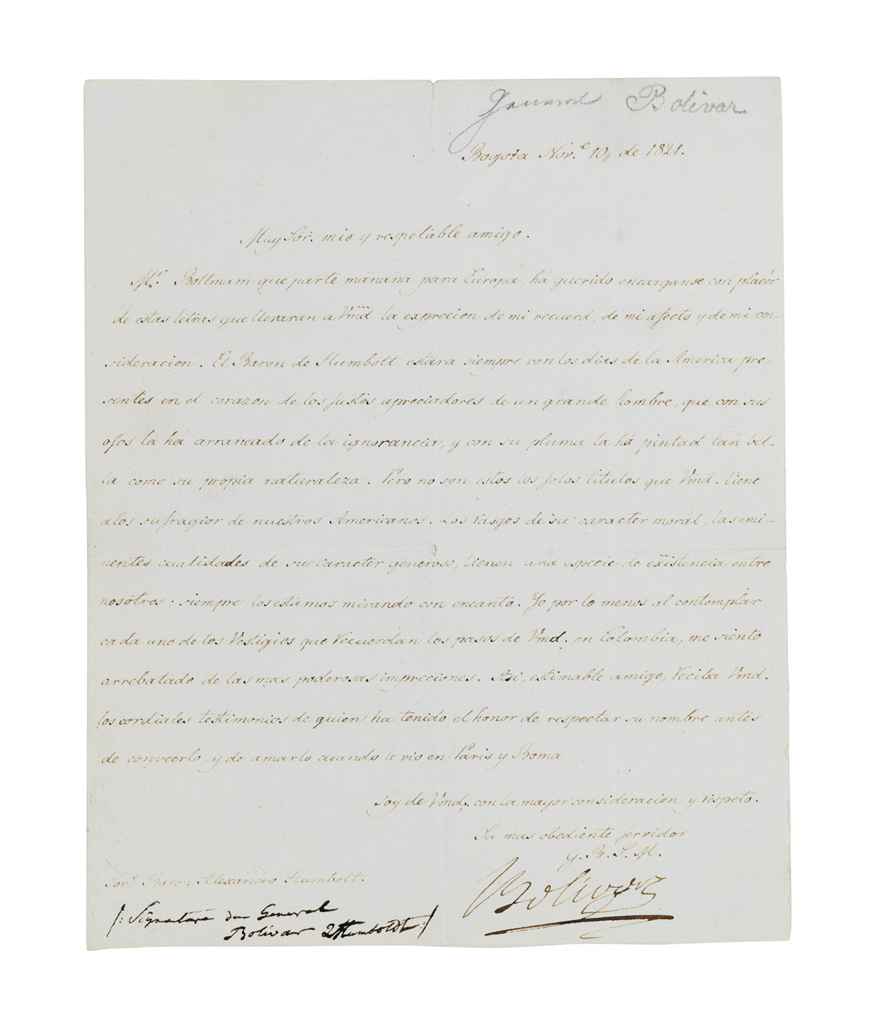 General Bolivar
Bogota Nov.e 10, de 1821.
Muy Sor. mio y respetable amigo.
Mr. Bollmam que parte mañana para Europa ha querido encargarse con placer
de estas letras que llevaran a Vmd la exprecion de mi recuerd, de mi afecto y de mi con-
sideracion. El Baron de Humbolt estara siempre con los dias de la America pre-
sentes en el corazon de los justos apreciadores de un grande hombre, que con sus
ojos la ha arrancado de la ignorancia, y con su pluma la ha pintad tan bel-
la como su propia naturaleza. Pero no son estos los solos titulos que Vmd. tiene
alos sufragios de nuestros Americanos. Los rasgos de su caracter moral, las emi-
nentes cualidades de su caracter generoso, tienen una especie de existencia entre
nosotros: siempre los estamos mirando con encanto. Yo por lo menos al contemplar
cada uno de los Vestigios que recuerdan los pasos de Vmd. en Colombia, me siento
arrebatado de las mas poderosas impreciones. Asi, estimable amigo, reciba Vmd.
los cordiales testimonios de quien ha tenido el honor de respetar su nombre antes
de conocerlo, y de amarlo cuando le vio en Paris y Roma
Soy de Vmd. con la mayor consideracion y respeto.
Su mas obediente servidor
Q. B. S. M.
Bolivar
Sor. Baron Alexandro Humbolt.
/: Signature du General
Bolivar Humboldt /